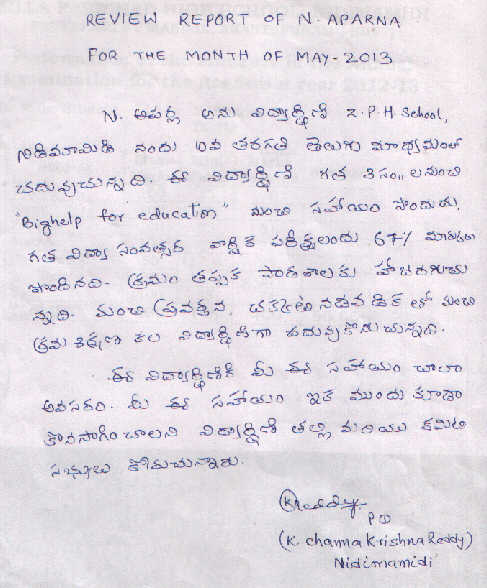 REVIEW REPORT OF N. APARNA
FOR THE MONTH OF MAY-2013
N. అపర్ణ అను విద్యార్థిని Z.P.H School,
నిడిమామిడి నందు 10వ తరగతి తెలుగు మాధ్యమంలో
చదువుచున్నది. ఈ విద్యార్థిని గత 3 సం॥ లనుంచి
"Bighelp for education" నుంచి సహాయం పొందుతు,
గత విద్యా సంవత్సర వార్షిక పరీక్షలందు 67% మార్కులు
పొందినది. క్రమం తప్పక పాఠశాలకు హాజరగుచు
న్నది. మంచి ప్రవర్తన, చక్కటి నడవడిక తో మంచి
క్రమ శిక్షణ కల విద్యార్థినిగా చదువుకొనుచున్నది.
ఈ విద్యార్థినికి మీ ఈ సహాయం చాలా
అవసరం. మీ ఈ సహాయం ఇక ముందు కూడా
కొనసాగించాలని విద్యార్థిని తల్లి మరియు కమిటి
సభ్యులు కోరుచున్నారు.
KReddy
PO
(K. Channa Krishna Reddy)
Nidimamidi